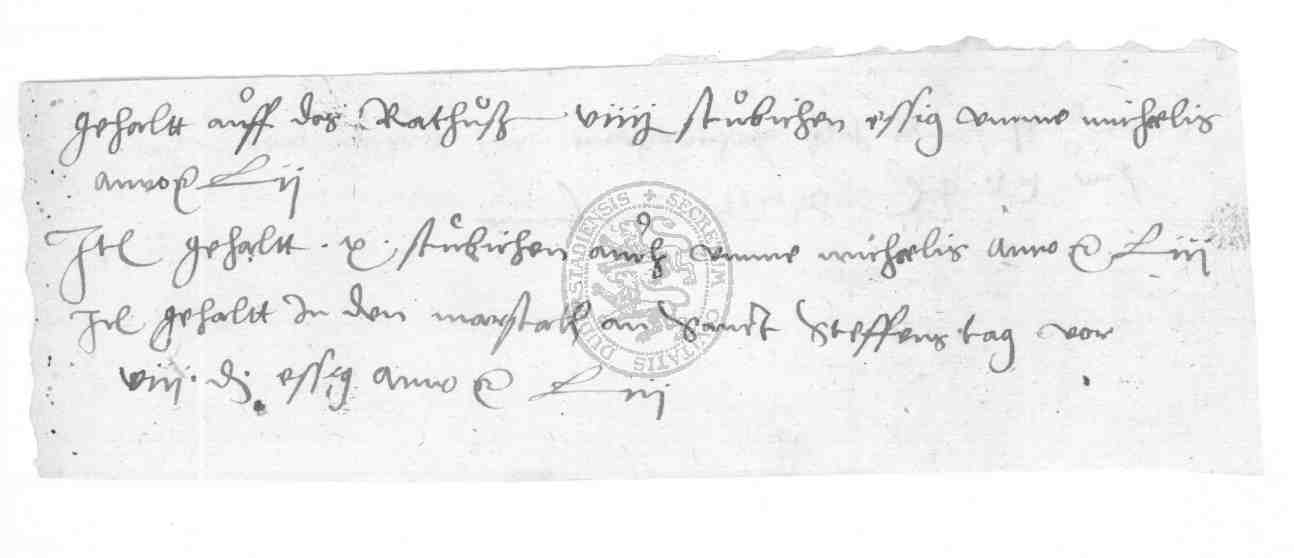 gehaltt auff das Rathuß viiij stubichen essig umme michelis
anno etc Lij
Itl gehaltt · x · stubichen auch umme michelis anno etc Liij
Itl gehaltt In den marstall an Sanct Steffens tag vor
viij · d essig anno etc Liij
SECRETUM CIVITATIS DUDERSTADIENSIS